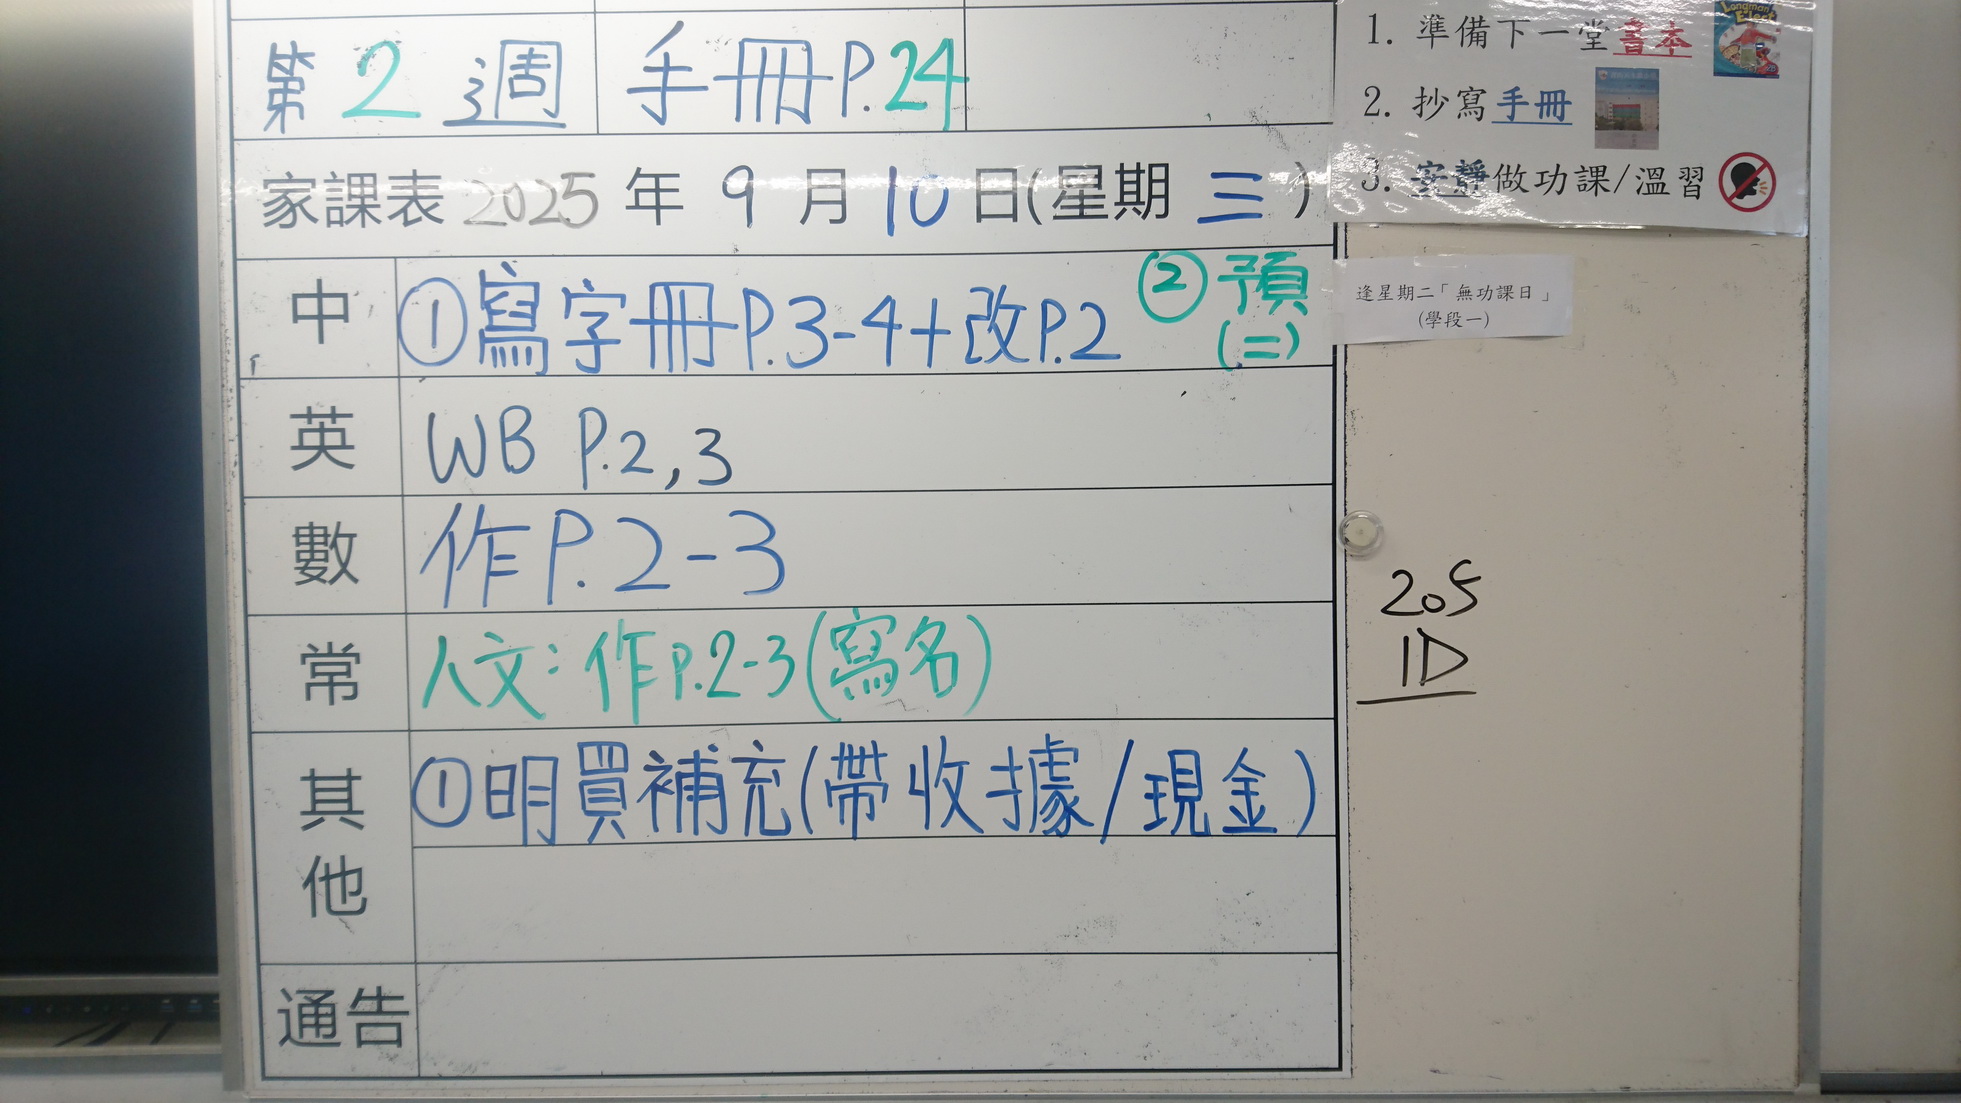 第 2 週 手冊 P.24
家課表 2025 年 9 月 10 日(星期 三 )
中 ①寫字冊P.3-4+改P.2 ②預(二)
英 WB P.2,3
數 作P.2-3
常 人文：作P.2-3(寫名)
其他 ①明買補充(帶收據/現金)
通告
1. 準備下一堂書本
Longman Elect
2. 抄寫手冊
3. 安靜做功課/溫習
逢星期二「無功課日」
(學段一)
205
1D